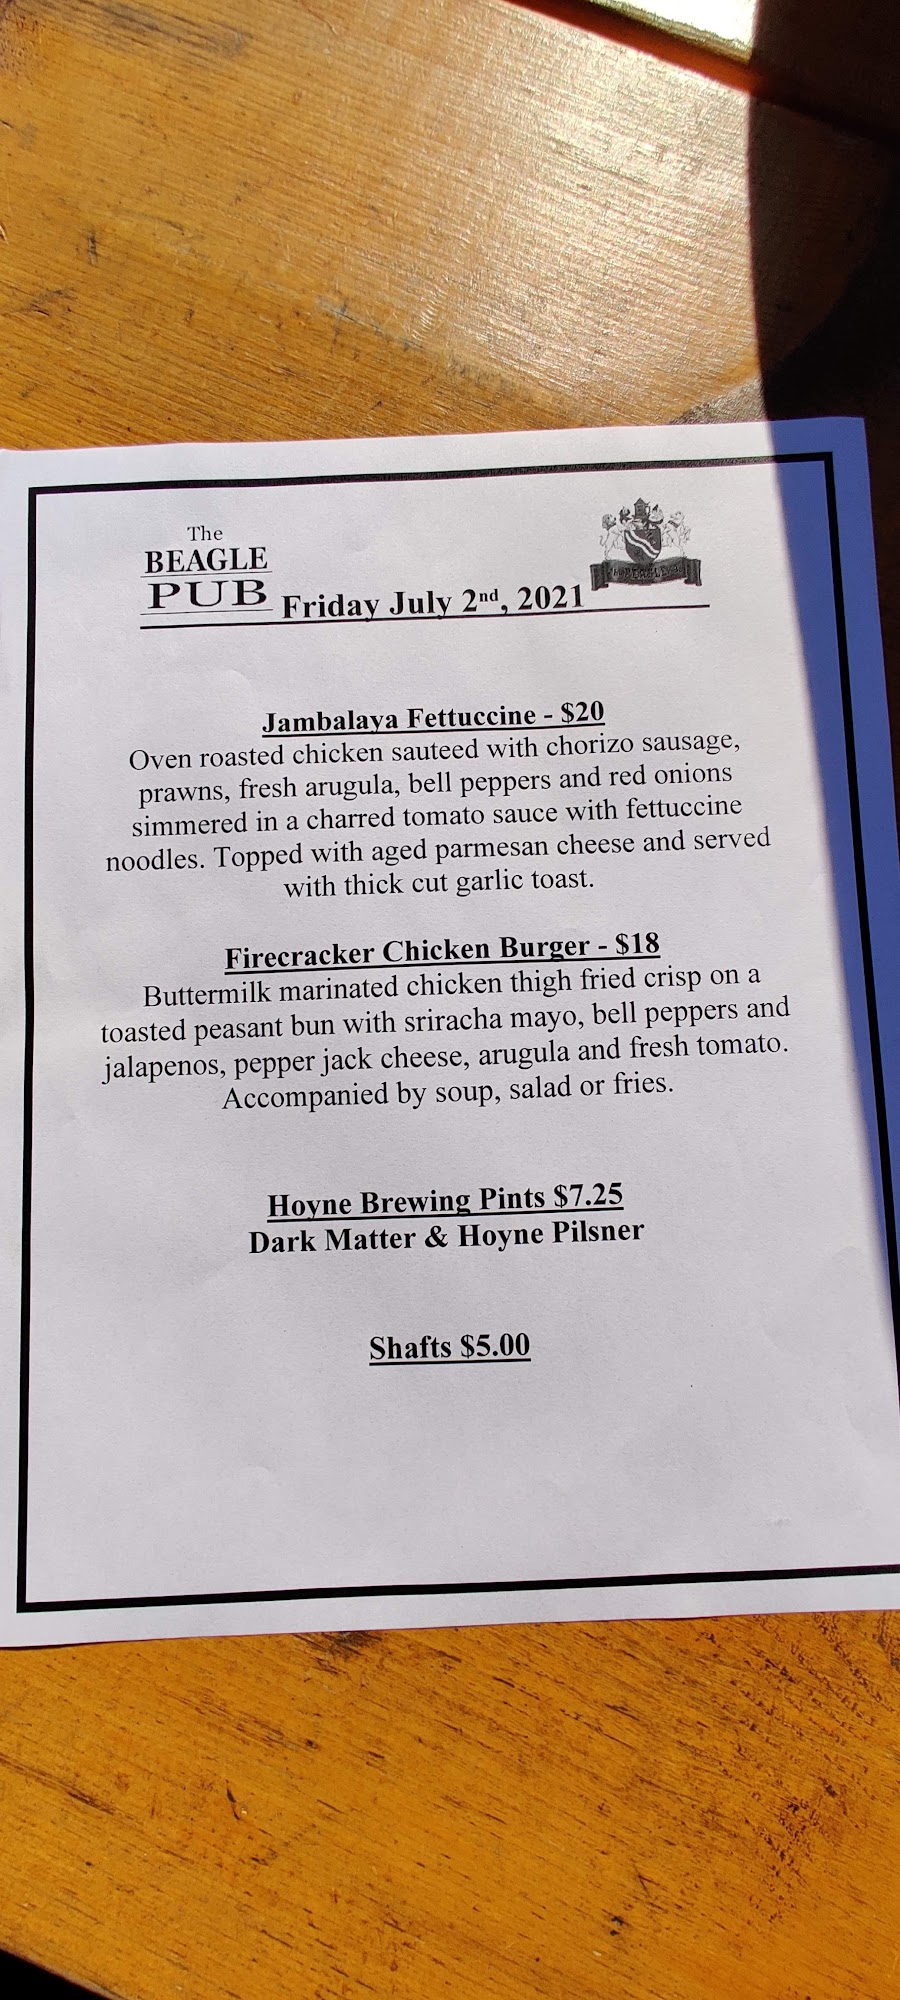 The
BEAGLE
PUB
Friday July 2nd, 2021
Jambalaya Fettuccine - $20
Oven roasted chicken sauteed with chorizo sausage,
prawns, fresh arugula, bell peppers and red onions
simmered in a charred tomato sauce with fettuccine
noodles. Topped with aged parmesan cheese and served
with thick cut garlic toast.
Firecracker Chicken Burger - $18
Buttermilk marinated chicken thigh fried crisp on a
toasted peasant bun with sriracha mayo, bell peppers and
jalapenos, pepper jack cheese, arugula and fresh tomato.
Accompanied by soup, salad or fries.
Hoyne Brewing Pints $7.25
Dark Matter & Hoyne Pilsner
Shafts $5.00